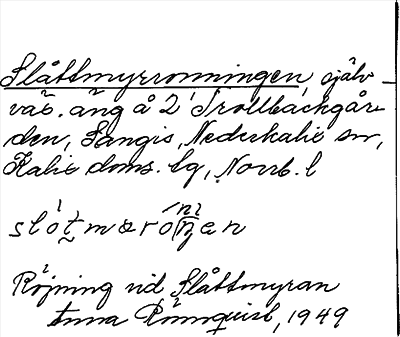 Slåttmyrronningen, själv-
väx. äng å 2 Trollbäckgår-
den, Sangis, Nederkalix sn,
Kalix doms. lg, Norrb. l
Röjning vid Slåttmyran
Anna Rönnquist, 1949